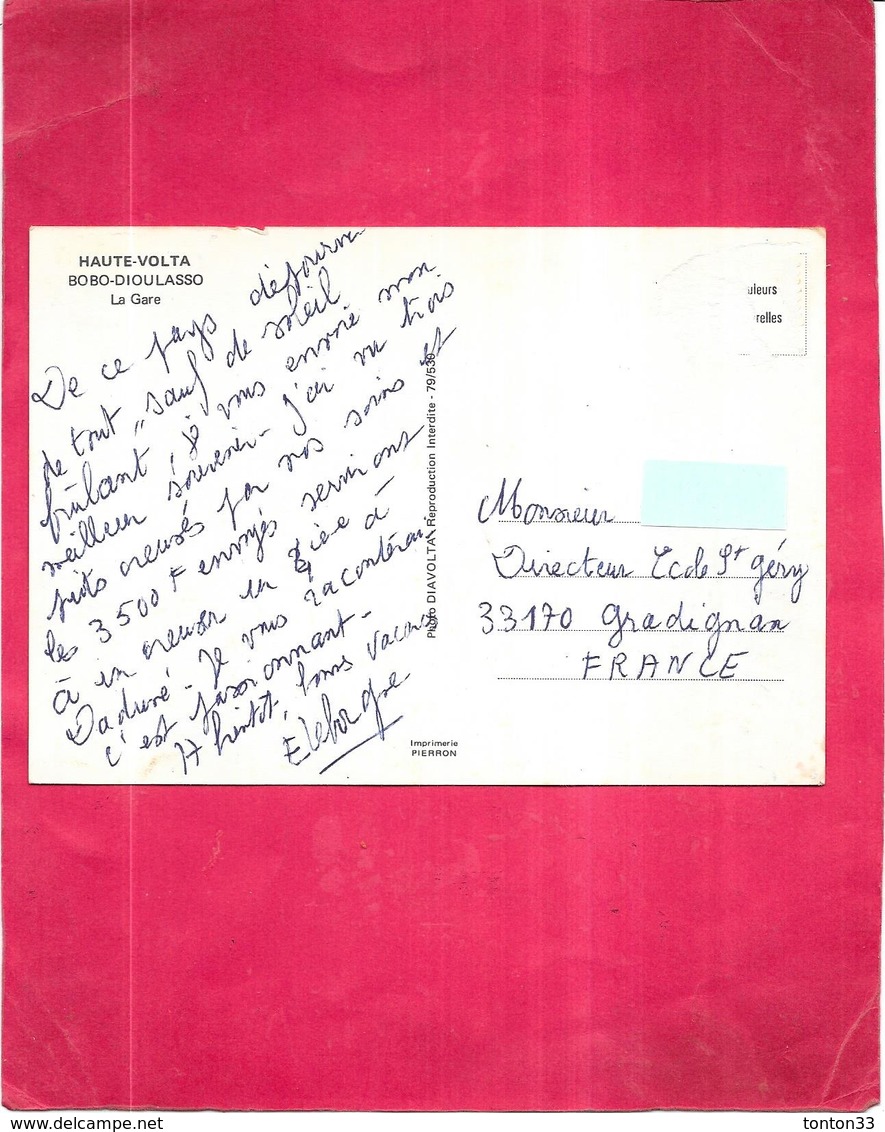 HAUTE-VOLTA
BOBO-DIOULASSO
La Gare
De ce pays dépourvu
de tout "sauf de soleil
brûlant, je vous envoie mon
meilleur souvenir - j'ai vu trois
puits creusés par nos soins et
les 3500 F envoyés serviront
à en creuser un 4ième à
. Je vous raconterai
c'est passionnant -
A bientôt, bonnes vacances

Photo DIAVOLTA - Reproduction Interdite - 79/530
Imprimerie
PIERRON
uleurs
relles
Monsieur
Directeur Ecole St Géry
33170 Gradignan
FRANCE
tonton33